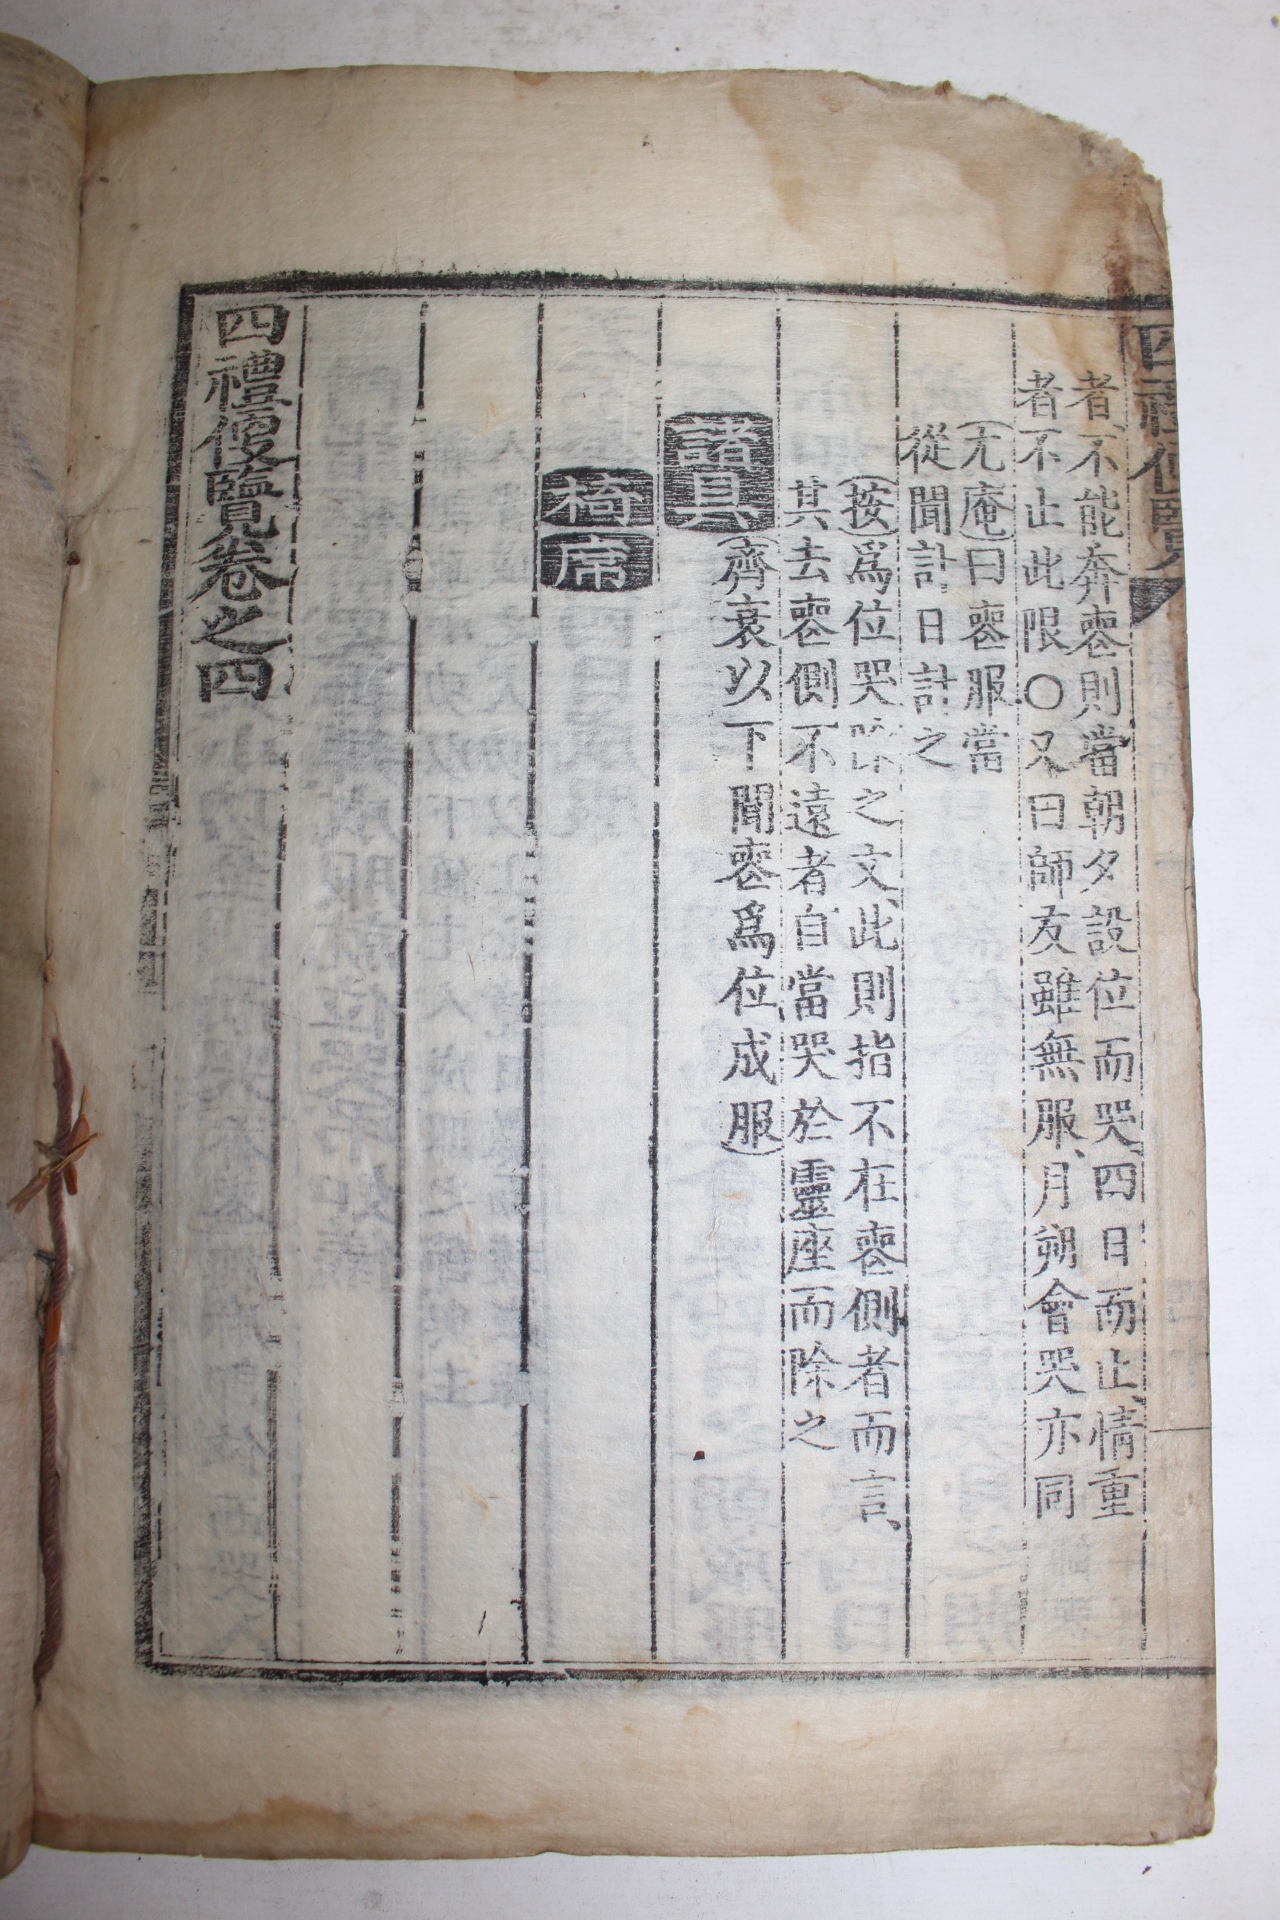 四禮便覽
者不能奔喪則當朝夕設位而哭四日而止情重
者不止此限○又曰師友雖無服月朔會哭亦同
尤庵曰喪服當
從聞訃日計之
按爲位哭除之文此則指不在喪側者而言
其去喪側不遠者自當哭於靈座而除之
諸具
齊衰以下聞喪爲位成服
椅
席
四禮便覽卷之四